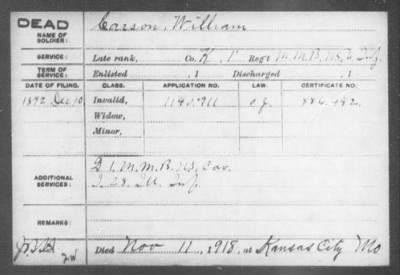 DEAD
NAME OF SOLDIER:
Carson, William
SERVICE:
Late rank, Co. K, 1 Reg't M.M.B. US. Inf.
TERM OF SERVICE:
Enlisted , 1 Discharged , 1
DATE OF FILING. CLASS. APPLICATION NO. LAW. CERTIFICATE NO.
1892 Dec 10 Invalid,
Widow,
Minor,
ADDITIONAL SERVICES:
D 1. M.M.B. US. Cav.
I. 28. Ill. Inf.
REMARKS:
Died Nov 11, 1918, at Kansas City Mo